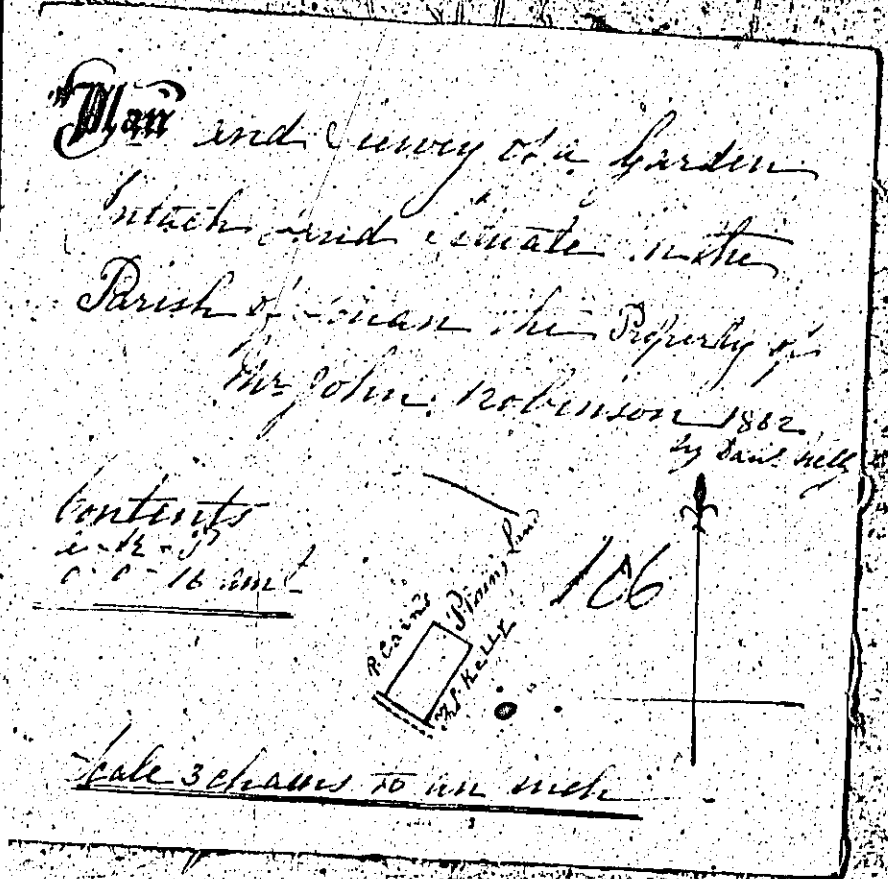 Plan and Survey of a Garden
Intack and situate in the
Parish of Conan the Property of
Mr. John Robinson 1862
by Danl. Kelly
Contents
0 - 0 - 16 amt
R. Cain's
Plains Land
Kelly
106
Scale 3 chains to an inch